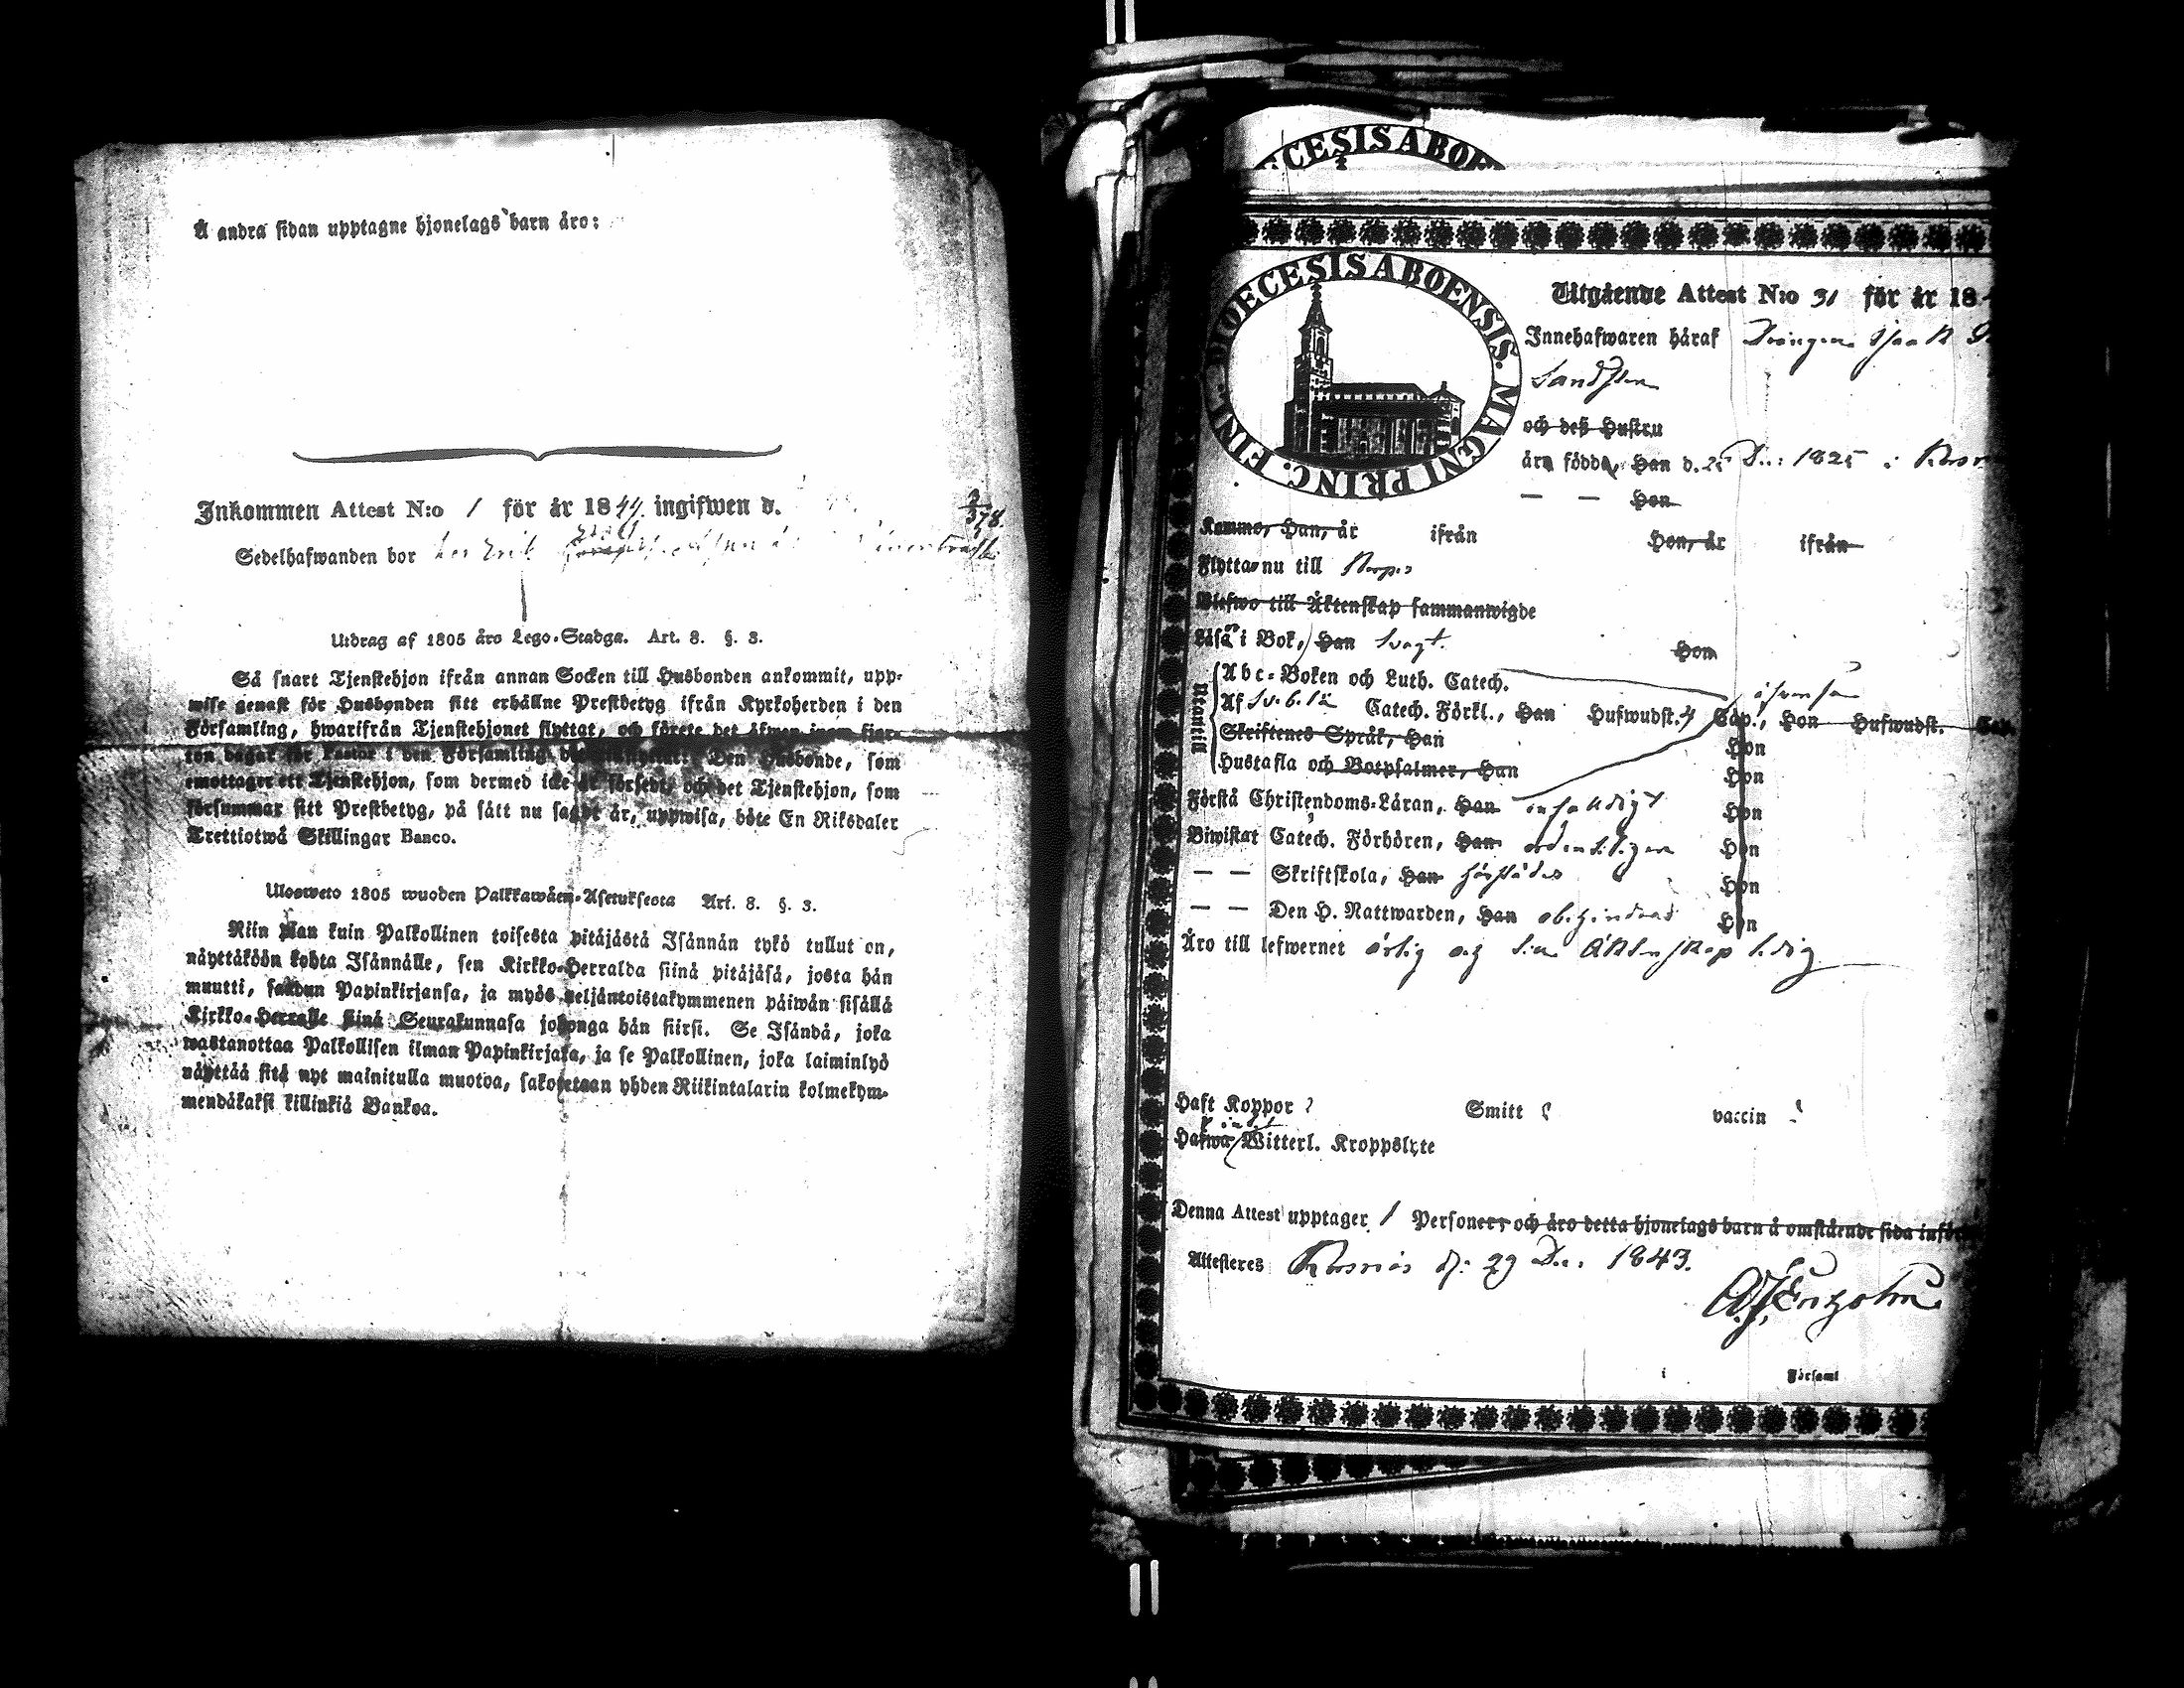 Å andra sidan upptagne hjonelags barn äro:
Inkommen Attest N:o 1 för år 1844 ingifwen d.
378
Sedelhafwanden bor hos Erik
Utdrag af 1805 års Lego-Stadga. Art. 8. §. 3.
Så snart Tjenstehjon ifrån annan Socken till Husbonden ankommit, upp-
wise genast för Husbonden sitt erhållne Prestbetyg ifrån Kyrkoherden i den
Församling, hwarifrån Tjenstehjonet flyttat, och förete det äfwen inom fjor-
ton dagar för Pastor i den Församling Den Husbonde, som
emottager ett Tjenstehjon, som dermed icke är försedt, och det Tjenstehjon, som
försummar sitt Prestbetyg, på sätt nu sagdt är, uppwisa, böte En Riksdaler
Trettiotwå Skillingar Banco.
Ulosweto 1805 wuoden Palkkawäen-Asetuksesta Art. 8. §. 3.
Niin pian kuin Palkollinen toisesta pitäjästä Isännän tykö tullut on,
näyttäköön kohta Isännälle, sen Kirkko-Herralda siinä pitäjäsä, josta hän
muutti, saadun Papinkirjansa, ja myös neljäntoistakymmenen päiwän sisällä
Kirkko-Herralle siinä Seurakunnasa johonga hän siirsi. Se Isändä, joka
wastanottaa Palkollisen ilman Papinkirjata, ja se Palkollinen, joka laiminlyö
näyttää sitä nyt mainitulla muotoa, sakotetaan yhden Riikintalarin kolmekym-
mendäkaksi killinkiä Bankoa.
ECESIS ABOE
DIOECESIS ABOENSIS. MAGNI PRINC. FINL.
Utgående Attest N:o 31 för år 18
Innehafwaren häraf Drängen Isaak
Sandsten
och deß Hustru
äro födda, Han d. 25 Dec: 1825 i
— — Hon
Kommo, Han, år ifrån Hon, år ifrån
Flytta nu till
Blefwo till Äktenskap sammanwigde
Läsa i Bok, Han svagt. Hon
Utantill
Abc-Boken och Luth. Catech.
Af Catech. Förkl., Han Hufwudst. 4 Cap., Hon Hufwudst. Cap.
Skriftenes Språk, Han Hon
Hustafla och Botpsalmer, Han Hon
Förstå Christendoms-Läran, Han enfaldigt Hon
Biwistat Catech. Förhören, Han ordentligen Hon
— — Skriftskola, Han härstädes Hon
— — Den H. Nattwarden, Han obehindrad Hon
Äro till lefwernet ärlig och till Äktenskap ledig
Haft Koppor ? Smitt ? vaccin ?
Hafwa ej Witterl. Kroppslyte
Denna Attest upptager 1 Personer och äro detta hjonelags barn å omstående sida inför
Attesteres d: 29 Dec: 1843.
i Församl